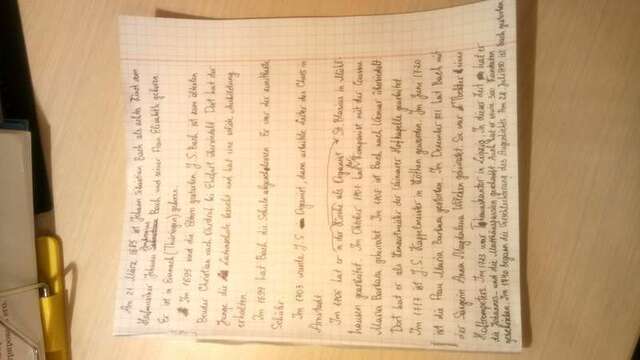 Am 21. März 1685 ist Johann Sebastian Bach als achtes Kind vom
Hofmusiker Johann Ambrosius Bach und seiner Frau Elisabeth geboren.
Er ist in Eisenach (Thüringen) geboren.
Im 1695 sind die Eltern gestorben. J.S. Bach ist zum älteren
Bruder Christian nach Ohrdruf bei Erfurt übersiedelt. Dort hat der
Junge die Lateinschule besucht und hat eine solide Ausbildung
erhalten.
Im 1699 hat Bach die Schule abgeschlossen. Er war der
Schüler
Im 1703 wurde J.S. Organist, dann arbeitete Leiter des Chors in
Arnstadt
Im 1706 hat er in der Kirche als Organist St. Blasius in Mühl-
hausen gearbeitet. Im Oktober 1707 hat Komponist mit der Cousine
Maria Barbara geheiratet. Im 1708 ist Bach nach Weimar übersiedelt
Dort hat er als Konzertmeister der Weimarer Hofkapelle gearbeitet
Im 1717 ist J.S. Kappelmeister in Köthen geworden. Im June 1720
ist die Frau Maria Barbara gestorben. Im Dezember 1721 hat Bach mit
der Sängerin Anna Magdalena Wilcken geheiratet. Sie war Tochter eines
Hoftrompeters. Im 1723 war Thomaskantor in Leipzig. In dieser Zeit hat er
die Johannes- und die Matthäuspassion gemacht. Auch hat er etwa 300 Kantaten
geschrieben. Im 1740 begann die Verschlechterung des Augenlichts. Am 28. Juli 1750 ist Bach gestorben.